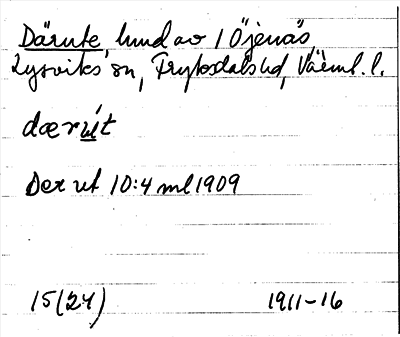 Därute, hund av 1 Öjenäs,
Lysviks sn, Fryksdals hd, Värml. l.
dærút
Der ut 10:4 ml 1909
15(24) 1911-16